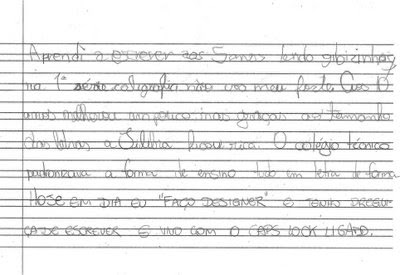 Aprendi a escrever aos 5 anos lendo gibizinhos,
na 1ª série caligrafia não era meu forte. Com 10
anos melhorou um pouco mas graças ao tamanho
das letras a ficava rica. O colégio técnico
padronizava a forma de ensino tudo em letra de forma
HOJE EM DIA EU "FAÇO DESIGNER" E TENHO
ÇA DE ESCREVER E VIVO COM O CAPS LOCK LIGADO.